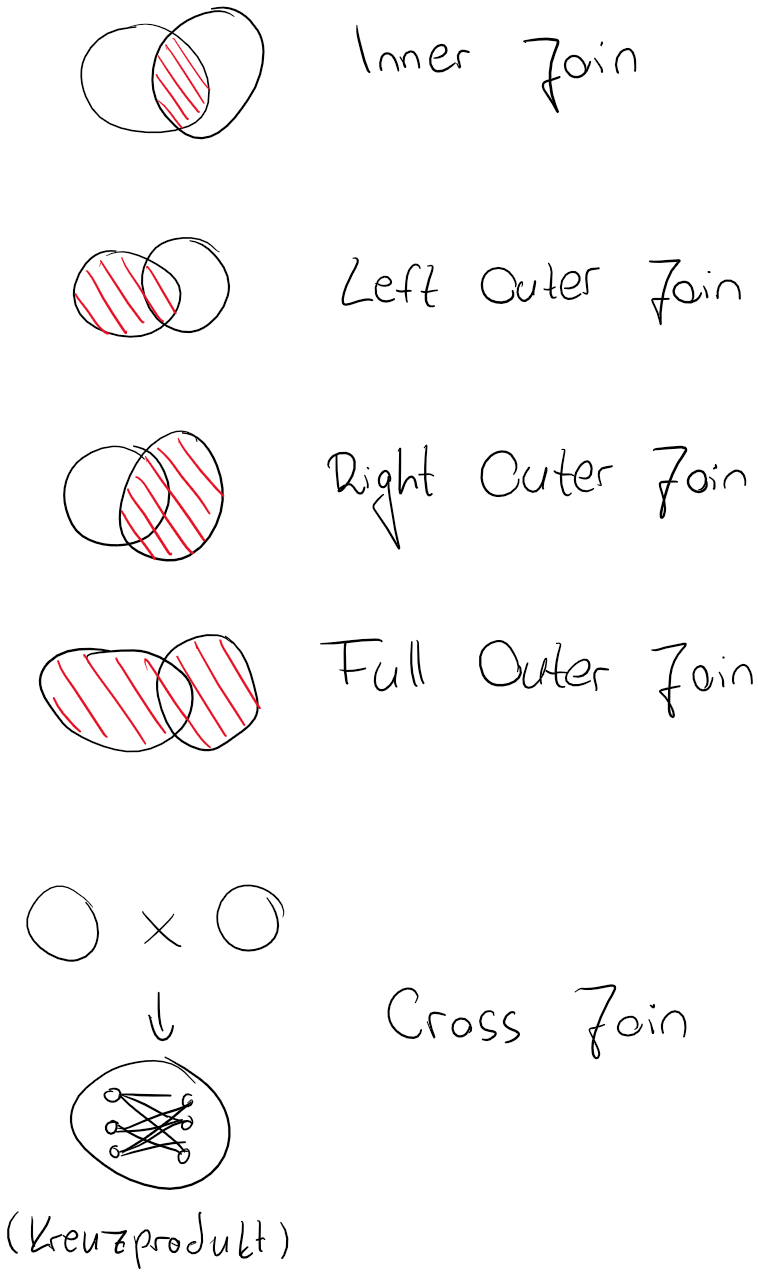 Inner Join
Left Outer Join
Right Outer Join
Full Outer Join
x
Cross Join
(Kreuzprodukt)